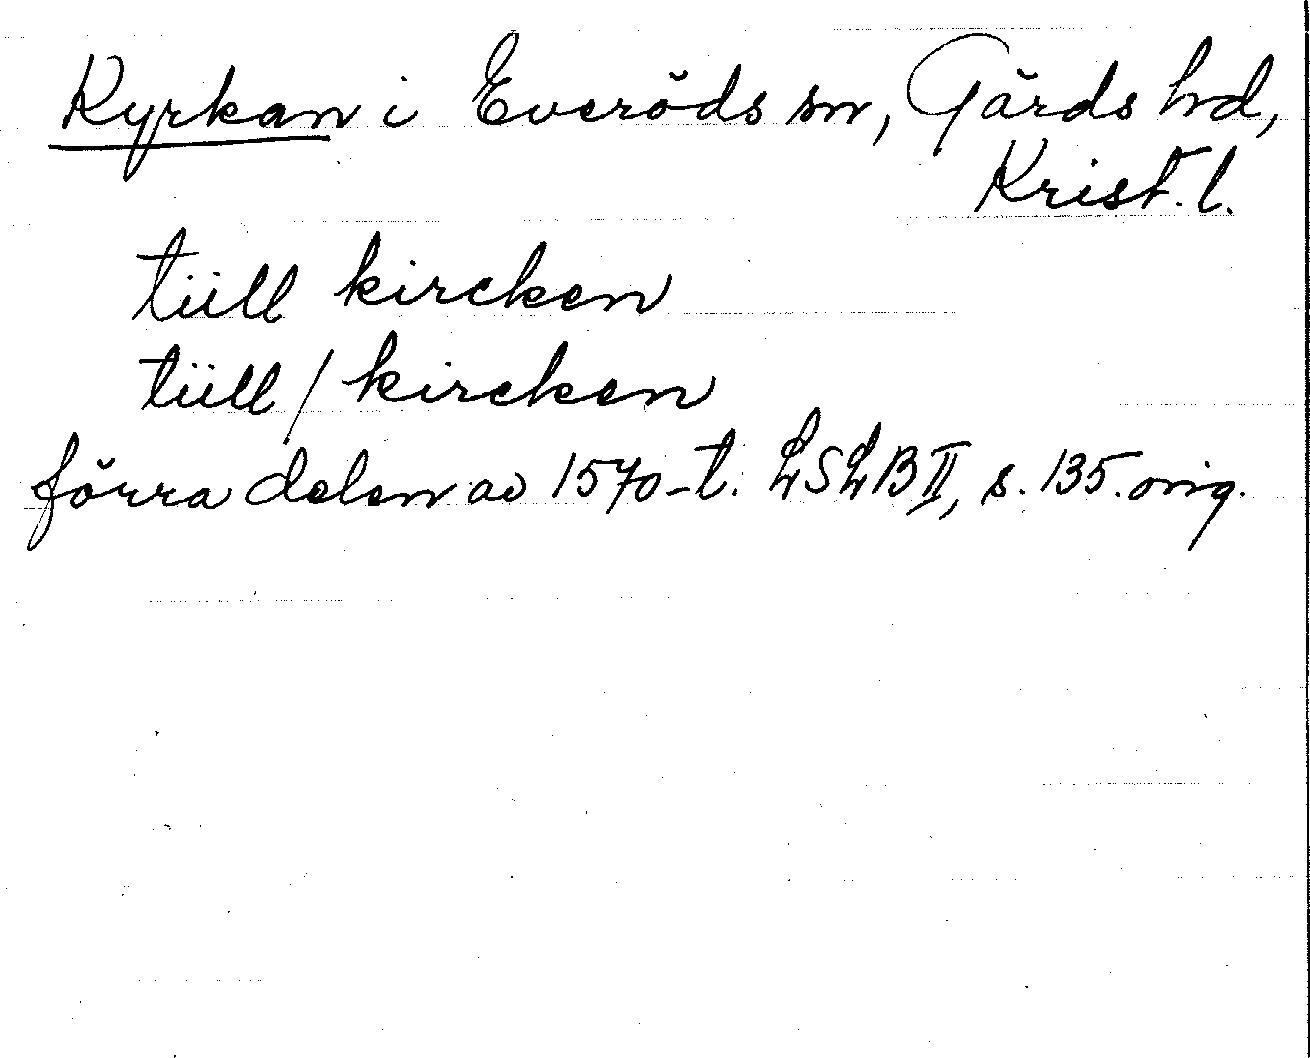 Kyrkan i Everöds sn, Gärds hd,
Krist. l.
tiill kircken
tiill / kircken
förra delen av 1570-t. LSLB II, s. 135. orig.